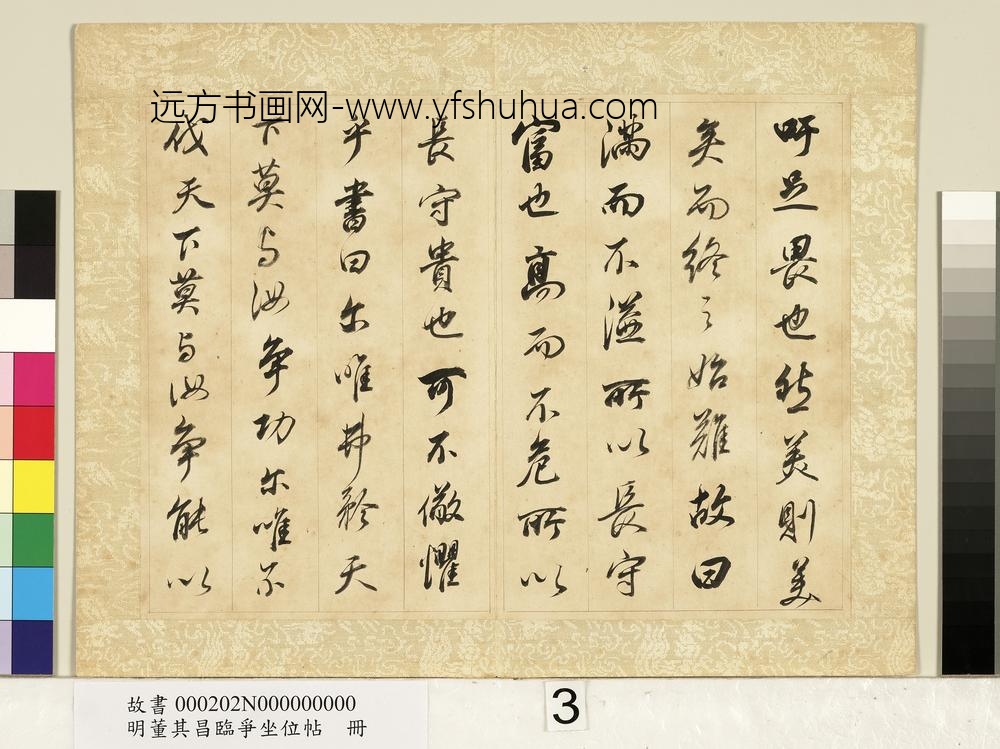 远方书画网-www.yfshuhua.com
吁足畏也然美則美
矣而終之始難故曰
滿而不溢所以長守
富也高而不危所以
長守貴也可不儆懼
乎書曰尔唯弗矜天
下莫与汝爭功尔唯不
伐天下莫与汝爭能以
故書 000202N000000000
明董其昌臨爭坐位帖 冊
3